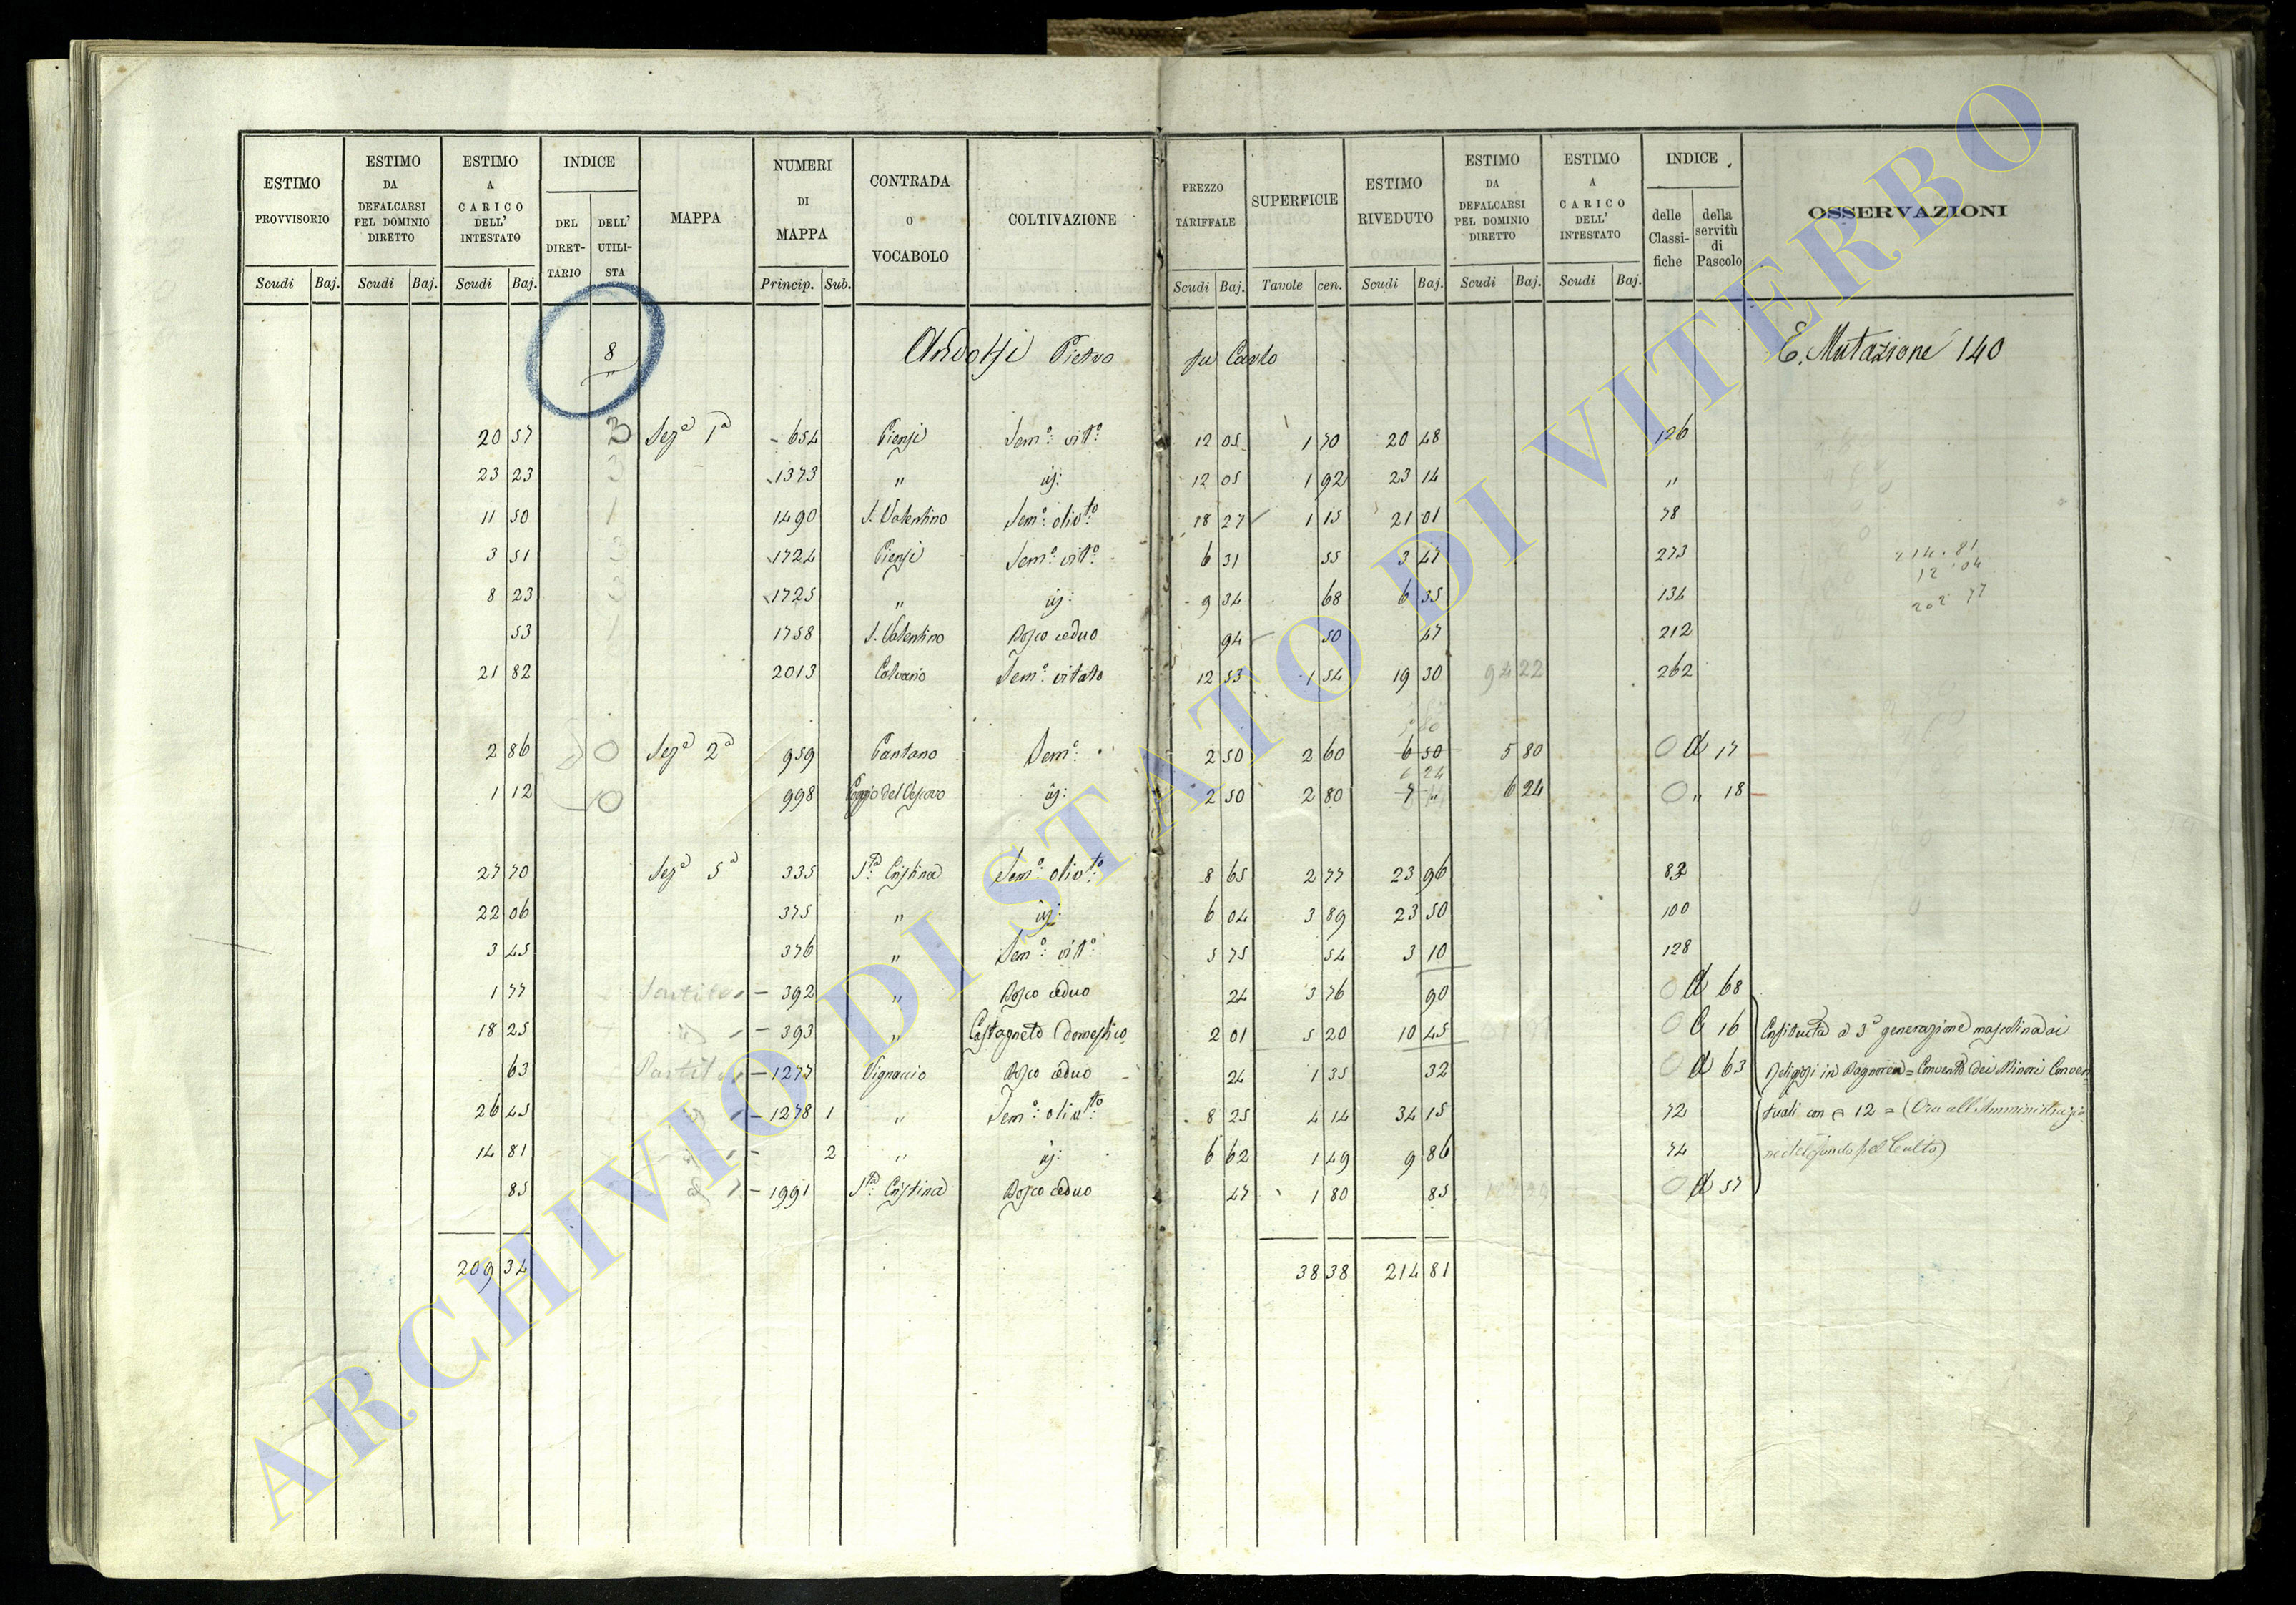 ESTIMO PROVVISORIO Scudi Baj.
ESTIMO DA DEFALCARSI PEL DOMINIO DIRETTO Scudi Baj.
ESTIMO A CARICO DELL' INTESTATO Scudi Baj.
INDICE DEL DIRET-TARIO DELL' UTILI-STA
MAPPA
NUMERI DI MAPPA Princip. Sub.
CONTRADA O VOCABOLO
COLTIVAZIONE
PREZZO TARIFFALE Scudi Baj.
SUPERFICIE Tavole cen.
ESTIMO RIVEDUTO Scudi Baj.
ESTIMO DA DEFALCARSI PEL DOMINIO DIRETTO Scudi Baj.
ESTIMO A CARICO DELL' INTESTATO Scudi Baj.
INDICE delle Classi-fiche della servitù di Pascolo
OSSERVAZIONI
8 Andolfi Pietro fu Carlo E. Mutazione 140
20 57 3 Sezª 1ª 654 Pienzi Semº: vitº: 12 05 1 70 20 48 126
23 23 3 1373 " id: 12 05 1 92 23 14 "
11 50 1 1490 S. Valentino Semº: olivto: 18 27 1 15 21 01 78
3 51 3 1724 Pienzi Semº: vitº: 6 31 55 3 47 273
8 23 3 1725 " id: 9 34 68 6 35 134
53 1 1758 S. Valentino Bosco ceduo 94 50 47 212
21 82 2013 Calvario Semº: vitato 12 53 1 54 19 30 94 22 262
214.81
12.04
202 77
2 86 0 Sezª 2ª 959 Pantano Semº: 2 50 2 60 6 50 5 80 0 A 17
1 12 0 998 Poggio del Vescovo id: 2 50 2 80 6 24 7 " 6 24 0 " 18
27 70 Sezª 5ª 335 Sta: Cristina Semº: olivto: 8 65 2 77 23 96 83
22 06 375 " id: 6 04 3 89 23 50 100
3 45 376 " Semº: vitº: 5 75 54 3 10 128
1 77 392 " Bosco ceduo 24 3 76 90 0 A 68
18 25 393 " Castagneto domestico 2 01 5 20 10 45 0 C 16 Enfiteuta a 3ª generazione mascolina ai
63 1277 Vignaccio Bosco ceduo 24 1 35 32 0 A 63 Religiosi in Bagnorea = Convento dei Minori Conven
26 45 1278 1 " Semº: olivto: 8 25 4 14 34 15 72 tuali con 12 = (Ora all'Amministrazio
14 81 2 " id: 6 62 1 49 9 86 74 ne del fondo pel Culto)
85 1991 Sta: Cristina Bosco ceduo 47 1 80 85 0 A 57
209 34 38 38 214 81
ARCHIVIO DI STATO DI VITERBO